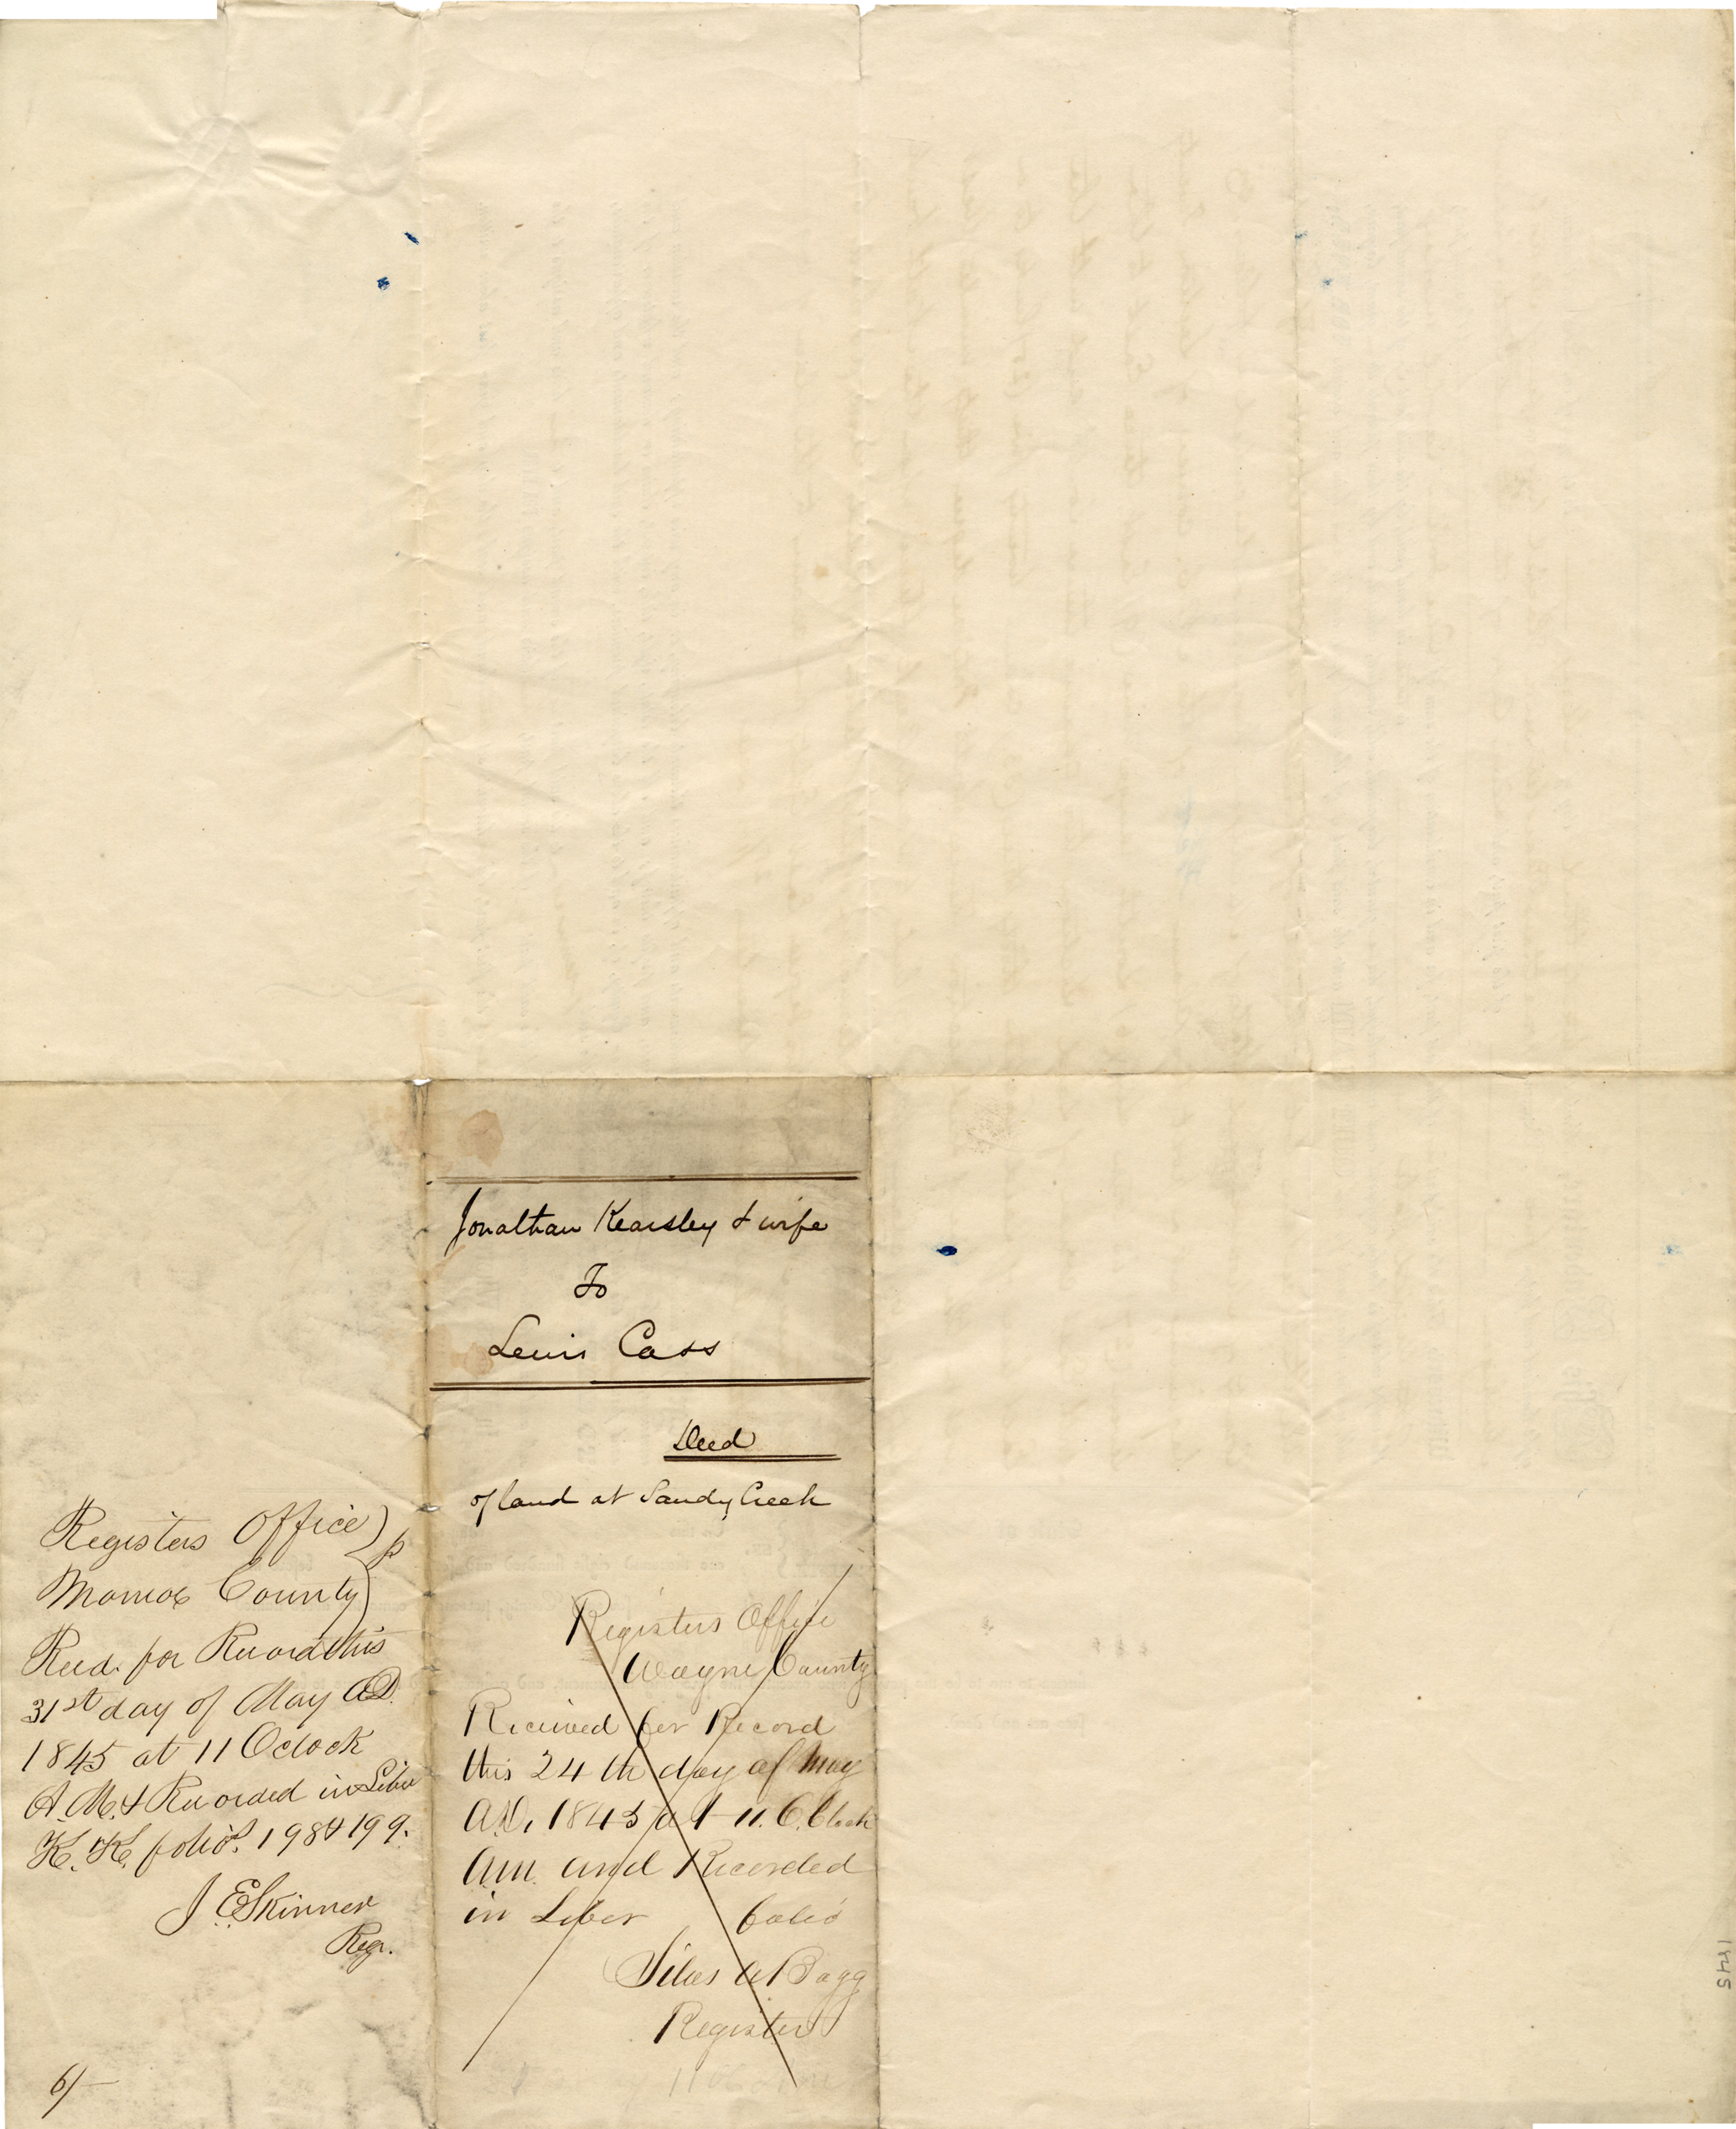 Jonathan Kearsley & wife
To
Lewis Cass
Deed
of land at Sandy Creek
Registers Office
Wayne County
Received for Record
this 24th day of May
A.D. 1845 at 11. O,Clock
Am. and Recorded
in Liber folio
Silas A Bagg
Register
Registers Office
Monroe County
Recd. for Record this
31st day of May AD.
1845 at 11 Oclock
A.M. & Recorded in Liber
K. K. folios. 198 & 199.
J E Skinner
Regr.
6/-
1845